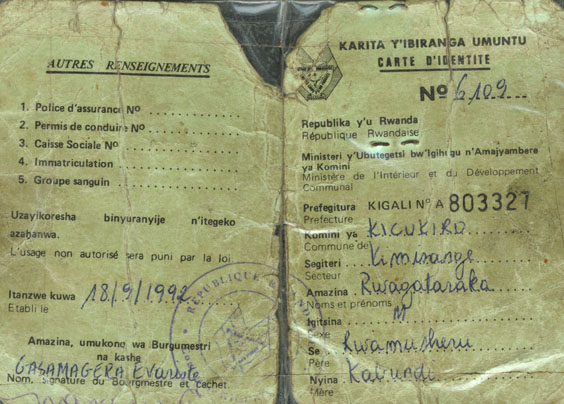 AUTRES RENSEIGNEMENTS
1. Police d'assurance No
2. Permis de conduire No
3. Caisse Sociale No
4. Immatriculation
5. Groupe sanguin
Uzayikoresha binyuranyije n'itegeko
azahanwa.
L'usage non autorisé sera puni par la loi
Itanzwe kuwa 18/9/1992
Etabli le
Amazina, umukono wa Burgumestri
na kashe
GASAMAGERA Evariste
Nom, Signature du Bourgmestre et cachet
KARITA Y'IBIRANGA UMUNTU
CARTE D'IDENTITE
No 6109
Republika y'u Rwanda
République Rwandaise
Ministeri y'Ubutegetsi bw'Igihugu n'Amajyambere
ya Komini
Ministère de l'Intérieur et du Développement
Communal
Prefegitura KIGALI No A 803327
Prefecture
Komini ya KICUKIRO
Commune de
Segiteri Kimisange
Secteur
Amazina Rwagataraka
Noms et prénoms
Igitsina M
Sexe
Se Rwamusheru
Père
Nyina Kabundi
Mère